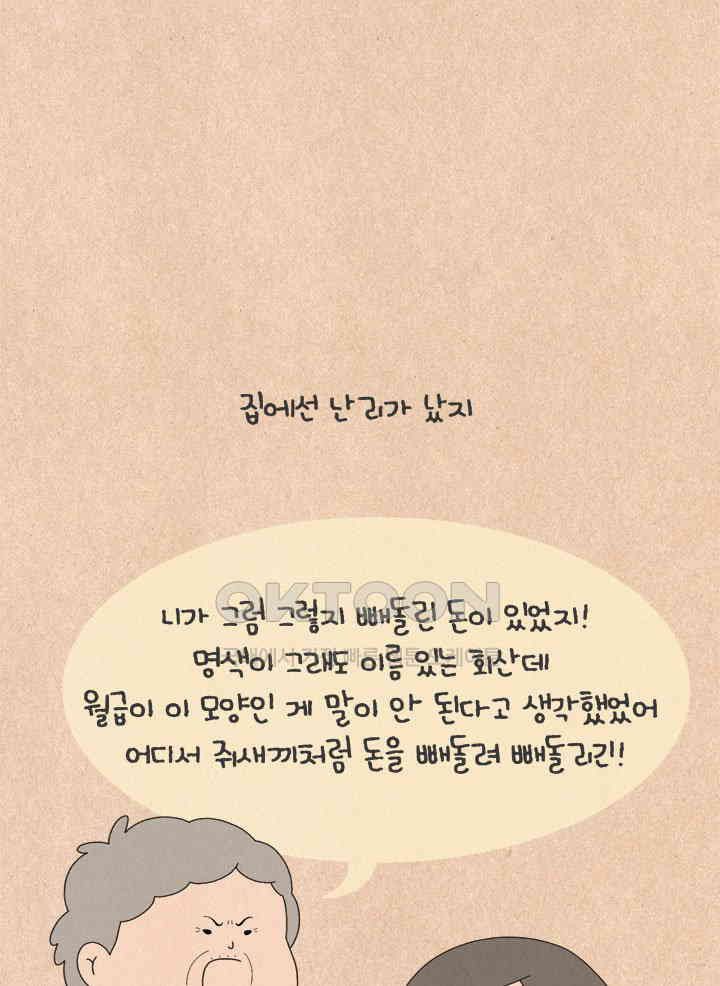 집에선 난리가 났지
OKTOON
니가 그럼 그렇지 빼돌린 돈이 있었지!
명색이 그래도 이름 있는 회산데
월급이 이 모양인 게 말이 안 된다고 생각했었어
어디서 쥐새끼처럼 돈을 빼돌려 빼돌리긴!